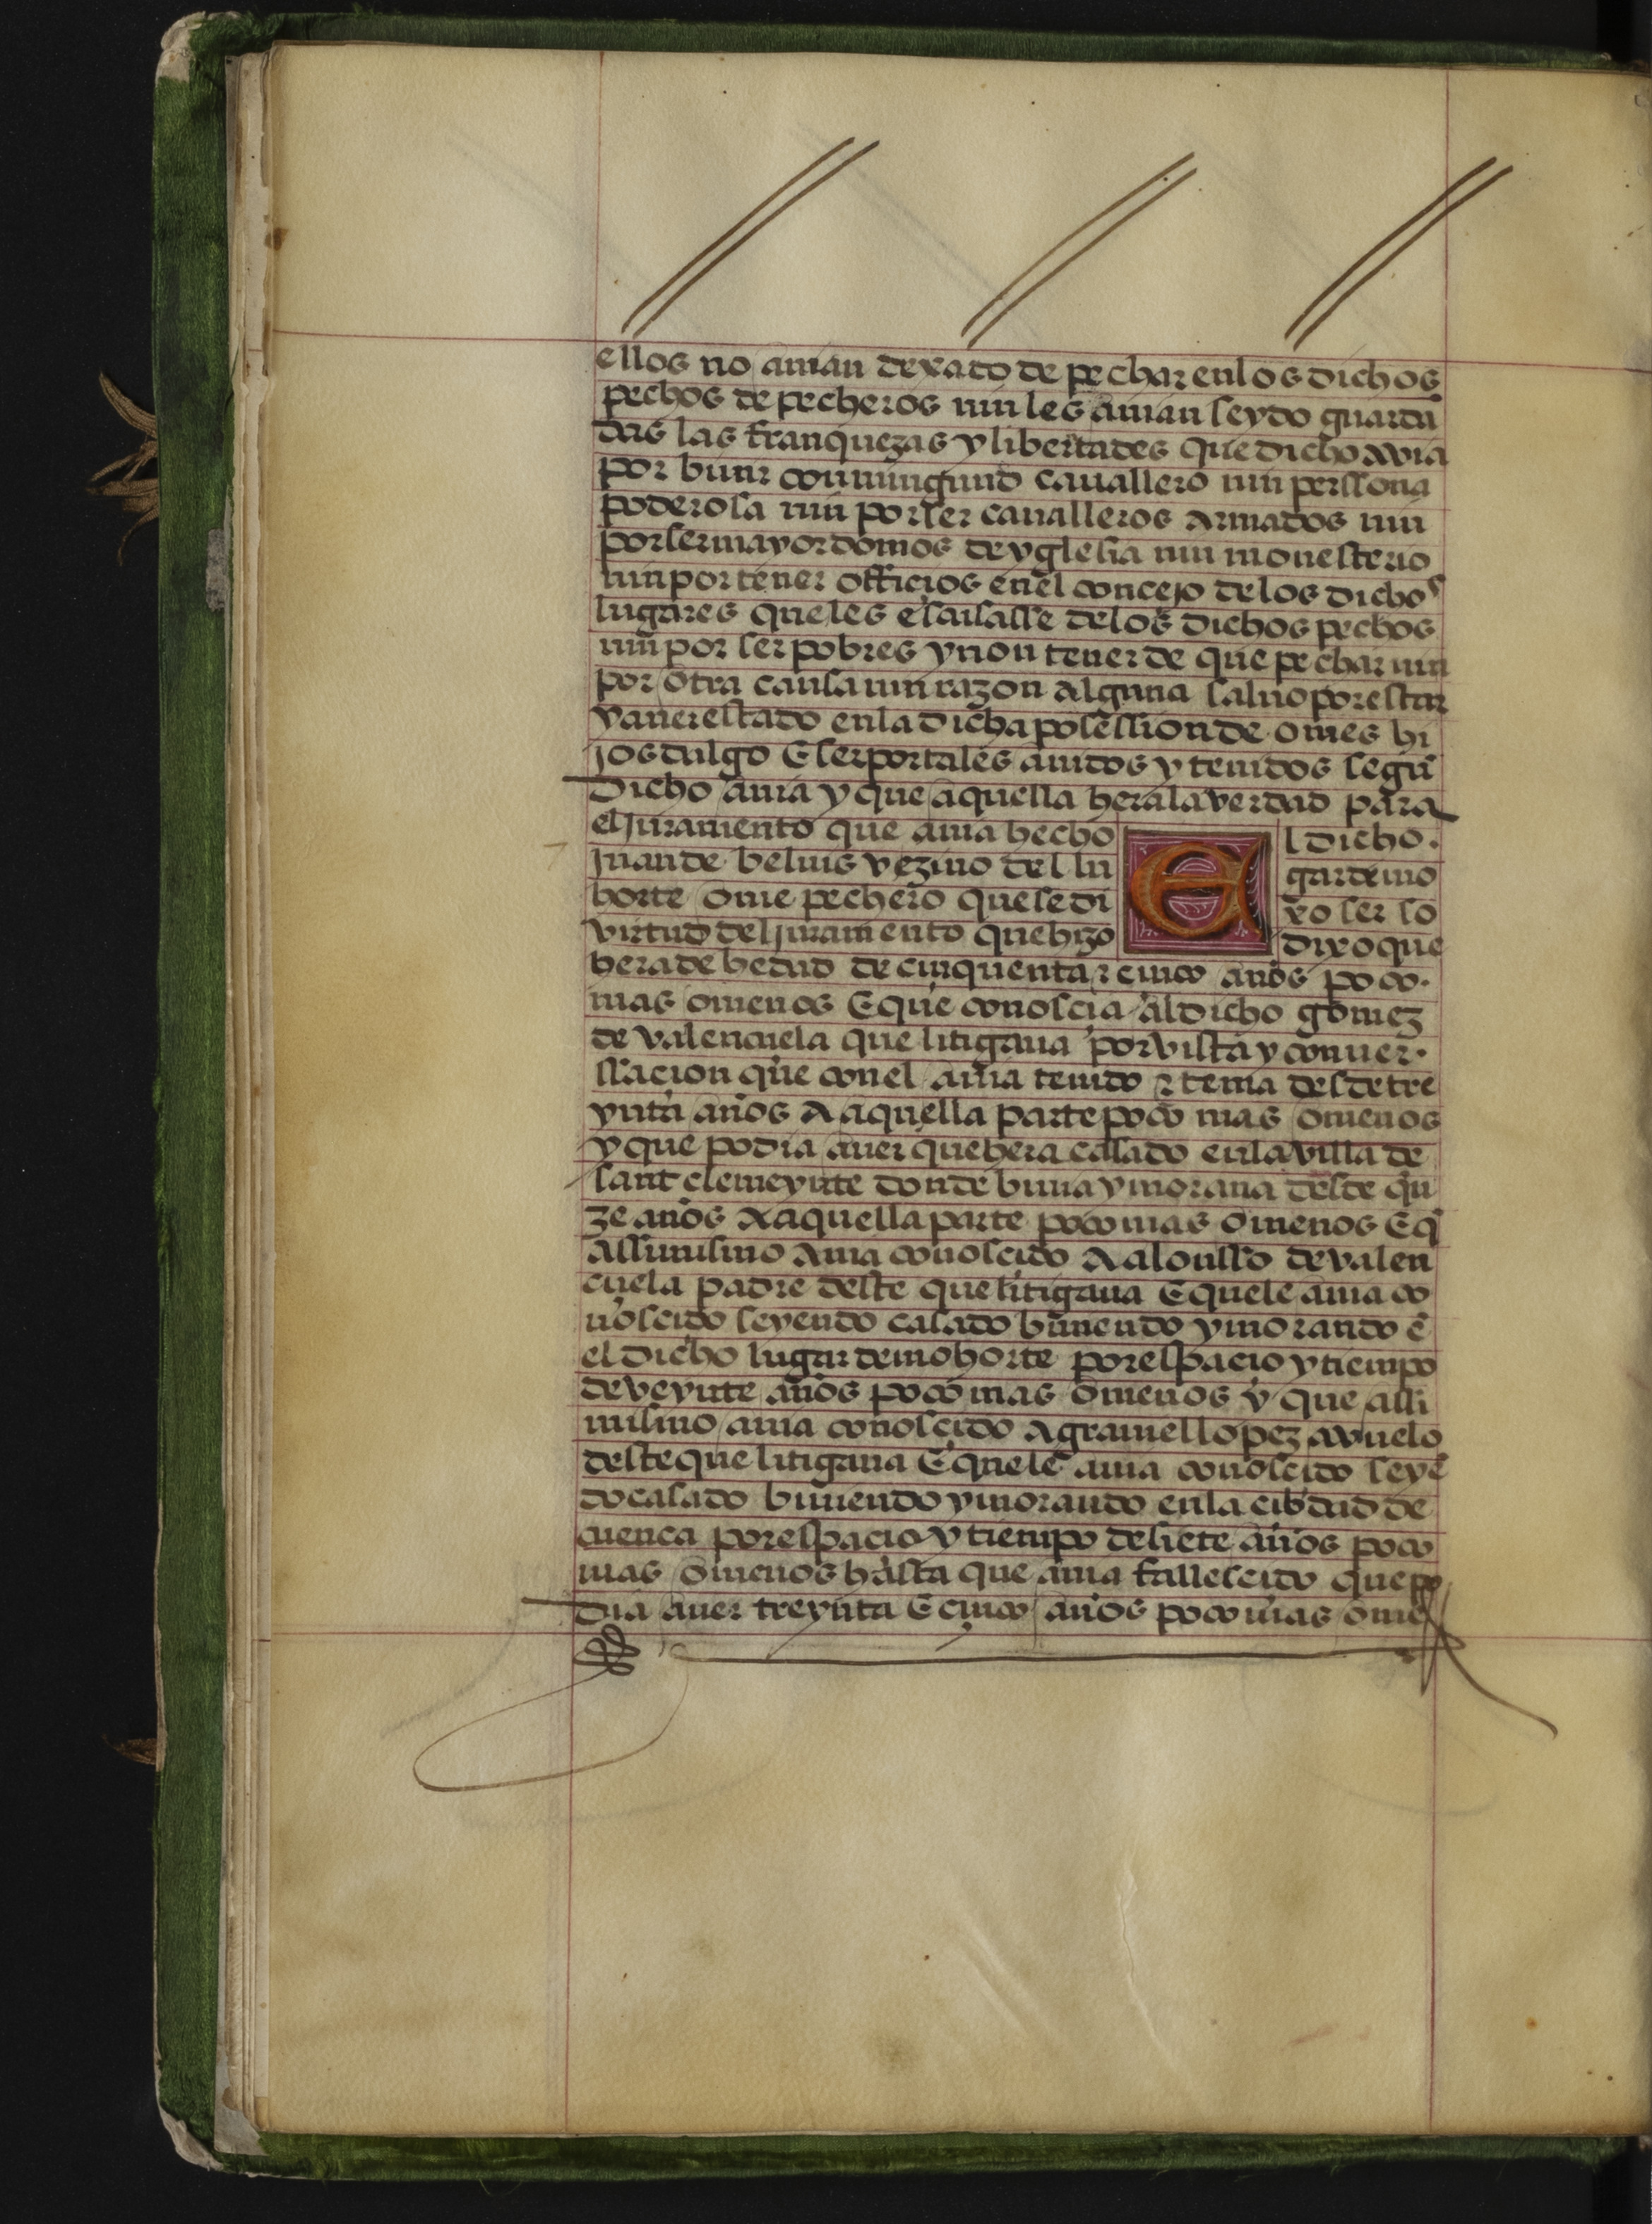 ellos no auian dexado de pechar en los dichos
pechos de pecheros nin les auian seydo guarda
das las franquezas y libertades que dicho avia
por biuir con ningund cauallero nin perssona
poderosa nin por ser caualleros armados nin
por ser mayordomos de yglesia nin monesterio
nin por tener officios en el concejo de los dichos
lugares que les escusasse de los dichos pechos
nin por ser pobres y non tener de que pechar nin
por otra causa nin razon alguna saluo por estar
y auer estado en la dicha possession de omes hi
jos dalgo E ser por tales auidos y tenidos segũ
dicho auia y que aquella hera la verdad para
el juramento que auia hecho El dicho.
juan de beluis vezino del lu gar de mo
horte ome pechero que se di xo ser so
virtud del juramento que hizo dixo que
hera de hedad de cinquenta z cinco años poco.
mas o menos E que conoscia al dicho gomez
de valençuela que litigaua por vista y conuer.
ssacion que con el auia tenido z tenia desde tre
ynta años A aquella parte poco mas o menos
y que podia auer que hera casado en la villa de
sant clemeynte donde biuia y moraua desde quĩ
ze años A aquella parte poco mas o menos E q̃
Assimismo Auia conoscido A alonsso de valen
çuela padre deste que litigaua E que le auia co
noscido seyendo casado biuiendo y morando ẽ
el dicho lugar de mohorte por espacio y tiempo
de veynte años poco mas o menos y que assi
mismo auia conoscido A grauiel lopez avuelo
deste que litigaua E que le auia conoscido seyẽ
do casado biuiendo y morando en la cibdad de
cuenca por espacio y tiempo de siete años poco
mas o menos hasta que auia fallescido que po
dia auer treynta E çinco años poco mas o me